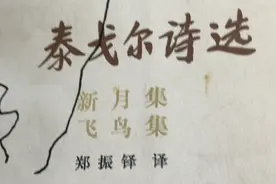 泰戈尔诗选
新月集
飞鸟集
郑振铎 译